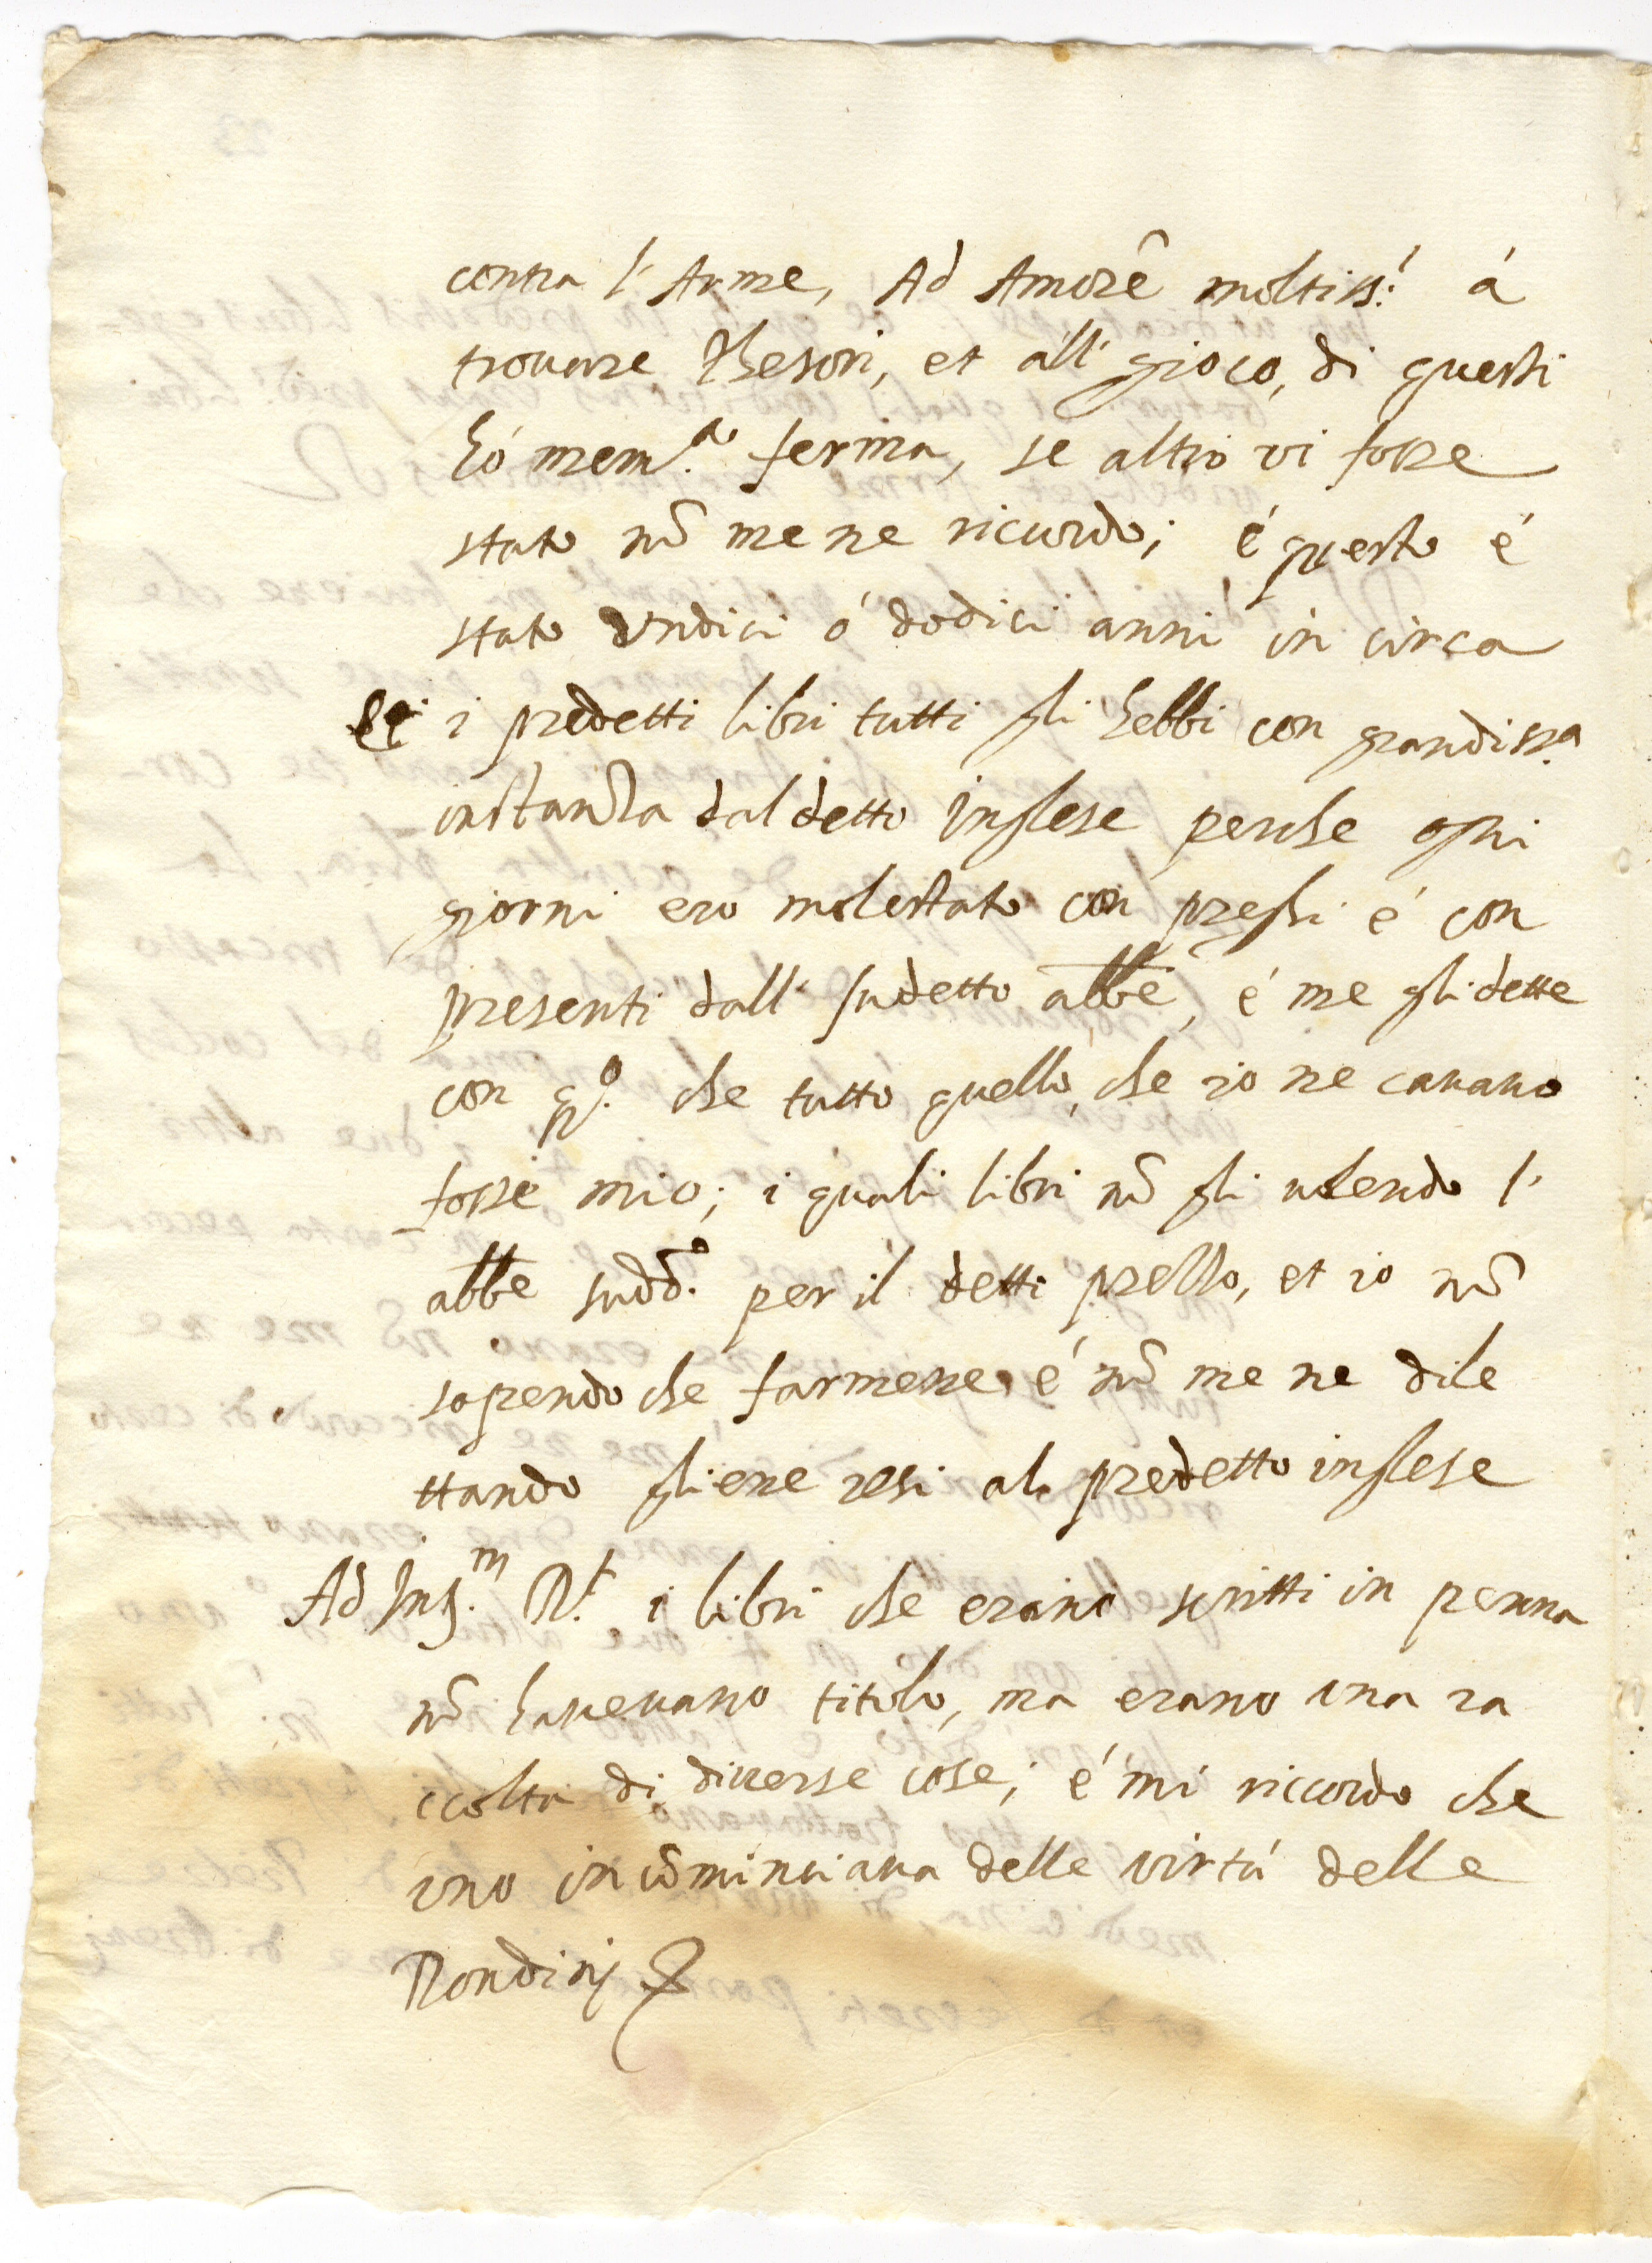 contra l'Arme, Ad Amorê moltiss:i á
trouare Thesori, et all' gioco, di questi
hó mem.a ferma, se altro vi fosse
stato nõ me ne ricordo; é questo é
stato vndici ó dodici anni in circa
Et i predetti libri tutti gli hebbi con grandiss.a
instanza dal detto inglese perche ogni
giorni ero molestato con preghi é con
presenti dall' sudetto abbe, é me gli dette
con q.o che tutto quello che io ne cauauo
fosse mio; i quali libri nõ gli uolendo l'
abbe sudd.o per il detti prezzo, et io nõ
sapendo che farmene é nõ me ne dile
ttando gliene resi al predetto inglese
Ad Int.m R.t i libri che erano scritti in penna
nõ haueuano titolo, ma erano vna ra
ccolta di diuerse cose; é mi riccordo che
vno incõminciaua delle virtú delle
Rondinj